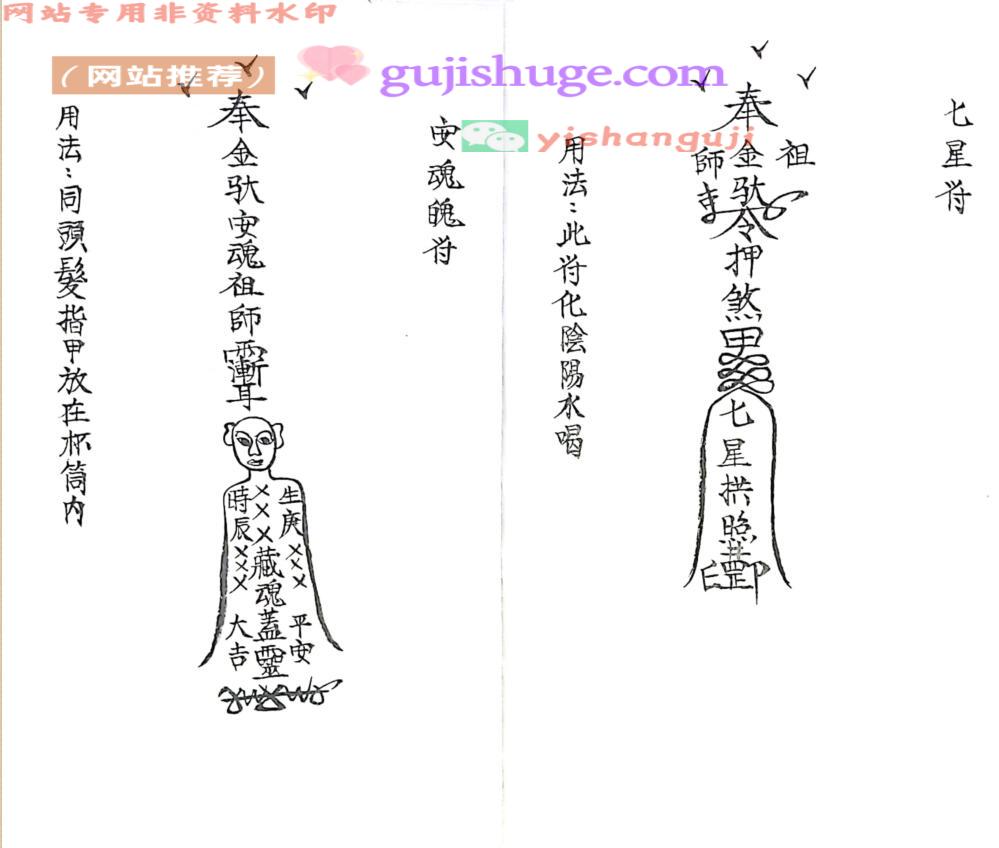 网站专用非资料水印
（网站推荐）
gujishuge.com
yishanguji
七星符
祖
師
奉金馱令押煞
七星拱照
罡印
用法：此符化陰陽水喝
安魂魄符
奉金馱安魂祖師
生庚×××平安
×××藏魂蓋靈
時辰×××大吉
用法：同頭髮指甲放在杯筒内